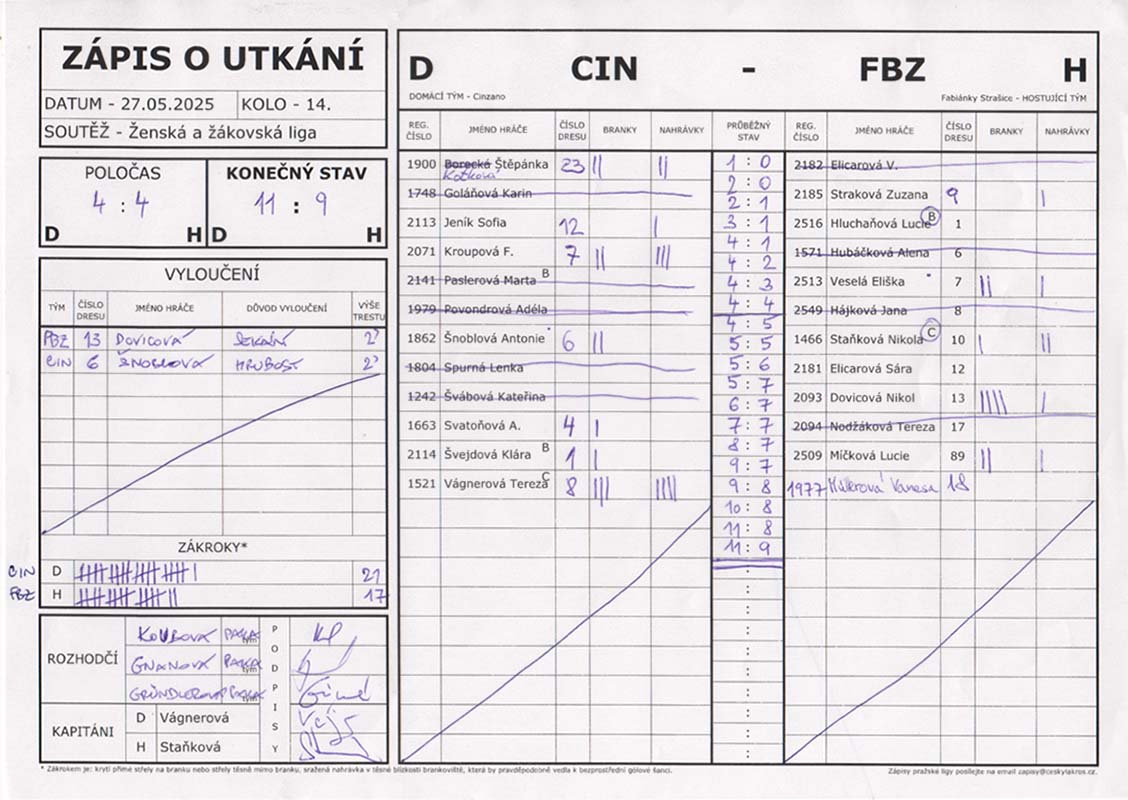 ZÁPIS O UTKÁNÍ
DATUM - 27.05.2025 KOLO - 14.
SOUTĚŽ - Ženská a žákovská liga
POLOČAS KONEČNÝ STAV
4 : 4 11 : 9
D H D H
VYLOUČENÍ
TÝM ČÍSLO DRESU JMÉNO HRÁČE DŮVOD VYLOUČENÍ VÝŠE TRESTU
FBZ 13 DOVICOVÁ SEKÁNÍ 2'
CIN 6 ŠNOBLOVÁ HRUBOST 2'
ZÁKROKY*
CIN D 21
FBZ H 17
ROZHODČÍ
KOUBOVÁ
GNANOVÁ
GRÜNDLEROVÁ
tým
tým
tým
PODPISY
KAPITÁNI
D Vágnerová
H Staňková
D CIN - FBZ H
DOMÁCÍ TÝM - Cinzano Fabiánky Strašice - HOSTUJÍCÍ TÝM
REG. ČÍSLO JMÉNO HRÁČE ČÍSLO DRESU BRANKY NAHRÁVKY PRŮBĚŽNÝ STAV REG. ČÍSLO JMÉNO HRÁČE ČÍSLO DRESU BRANKY NAHRÁVKY
1900 Borecká Štěpánka 23 || || 1 : 0 2182 Elicarová V.
Kotková
1748 Goláňová Karin 2 : 0 2185 Straková Zuzana 9 |
2 : 1
2113 Jeník Sofia 12 | 3 : 1 2516 Hluchaňová Lucie B 1
2071 Kroupová F. 7 || ||| 4 : 1 1571 Hubáčková Alena 6
4 : 2
2141 Paslerová Marta B 4 : 3 2513 Veselá Eliška 7 || |
1979 Povondrová Adéla 4 : 4 2549 Hájková Jana 8
4 : 5
1862 Šnoblová Antonie 6 || 5 : 5 1466 Staňková Nikola C 10 | ||
1804 Spurná Lenka 5 : 6 2181 Elicarová Sára 12
5 : 7
1242 Švábová Kateřina 6 : 7 2093 Dovicová Nikol 13 |||| |
1663 Svatoňová A. 4 | 7 : 7 2094 Nodžáková Tereza 17
8 : 7
2114 Švejdová Klára B 1 | 9 : 7 2509 Míčková Lucie 89 || |
1521 Vágnerová Tereza C 8 ||| |||| 9 : 8 1977 Müllerová Vanesa 18
10 : 8
11 : 8
11 : 9
:
:
:
:
:
:
:
* Zákrokem je: krytí přímé střely na branku nebo střely těsně mimo branku, sražená nahrávka v těsné blízkosti brankoviště, která by pravděpodobně vedla k bezprostřední gólové šanci.
Zápisy pražské ligy posílejte na email zapisy@ceskylakros.cz.